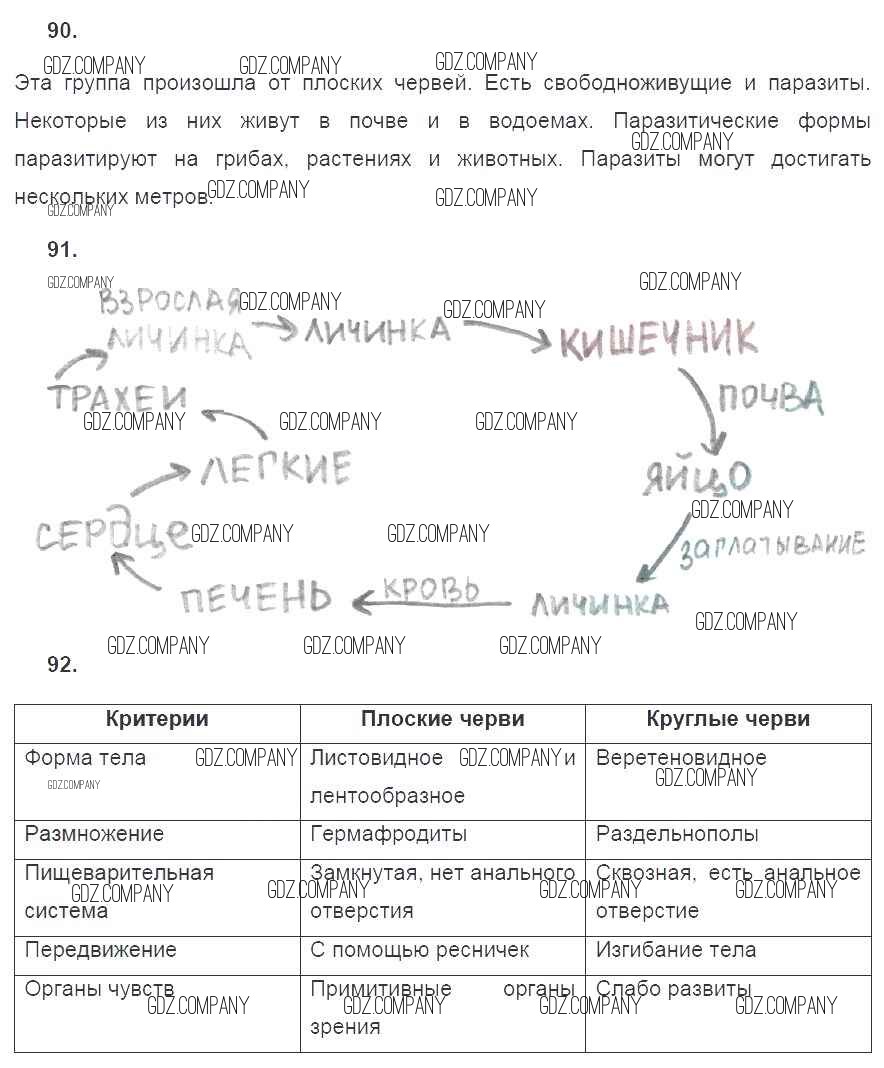 90.
GDZ.COMPANY GDZ.COMPANY GDZ.COMPANY
Эта группа произошла от плоских червей. Есть свободноживущие и паразиты.
Некоторые из них живут в почве и в водоемах. Паразитические формы
GDZ.COMPANY
паразитируют на грибах, растениях и животных. Паразиты могут достигать
нескольких метров. GDZ.COMPANY GDZ.COMPANY
GDZ.COMPANY
91.
GDZ.COMPANY GDZ.COMPANY
ВЗРОСЛАЯ GDZ.COMPANY GDZ.COMPANY
ЛИЧИНКА ЛИЧИНКА КИШЕЧНИК
ТРАХЕИ ПОЧВА
GDZ.COMPANY GDZ.COMPANY GDZ.COMPANY
ЛЕГКИЕ ЯЙЦО
GDZ.COMPANY
СЕРДЦЕ GDZ.COMPANY GDZ.COMPANY ЗАГЛАТЫВАНИЕ
ПЕЧЕНЬ КРОВЬ ЛИЧИНКА
GDZ.COMPANY
GDZ.COMPANY GDZ.COMPANY GDZ.COMPANY
92.
Критерии Плоские черви Круглые черви
Форма тела GDZ.COMPANY Листовидное GDZ.COMPANY и Веретеновидное
GDZ.COMPANY лентообразное GDZ.COMPANY
Размножение Гермафродиты Раздельнополы
Пищеварительная Замкнутая, нет анального Сквозная, есть анальное
GDZ.COMPANY GDZ.COMPANY GDZ.COMPANY GDZ.COMPANY
система отверстия отверстие
Передвижение С помощью ресничек Изгибание тела
Органы чувств Примитивные органы Слабо развиты
GDZ.COMPANY GDZ.COMPANY GDZ.COMPANY GDZ.COMPANY
зрения